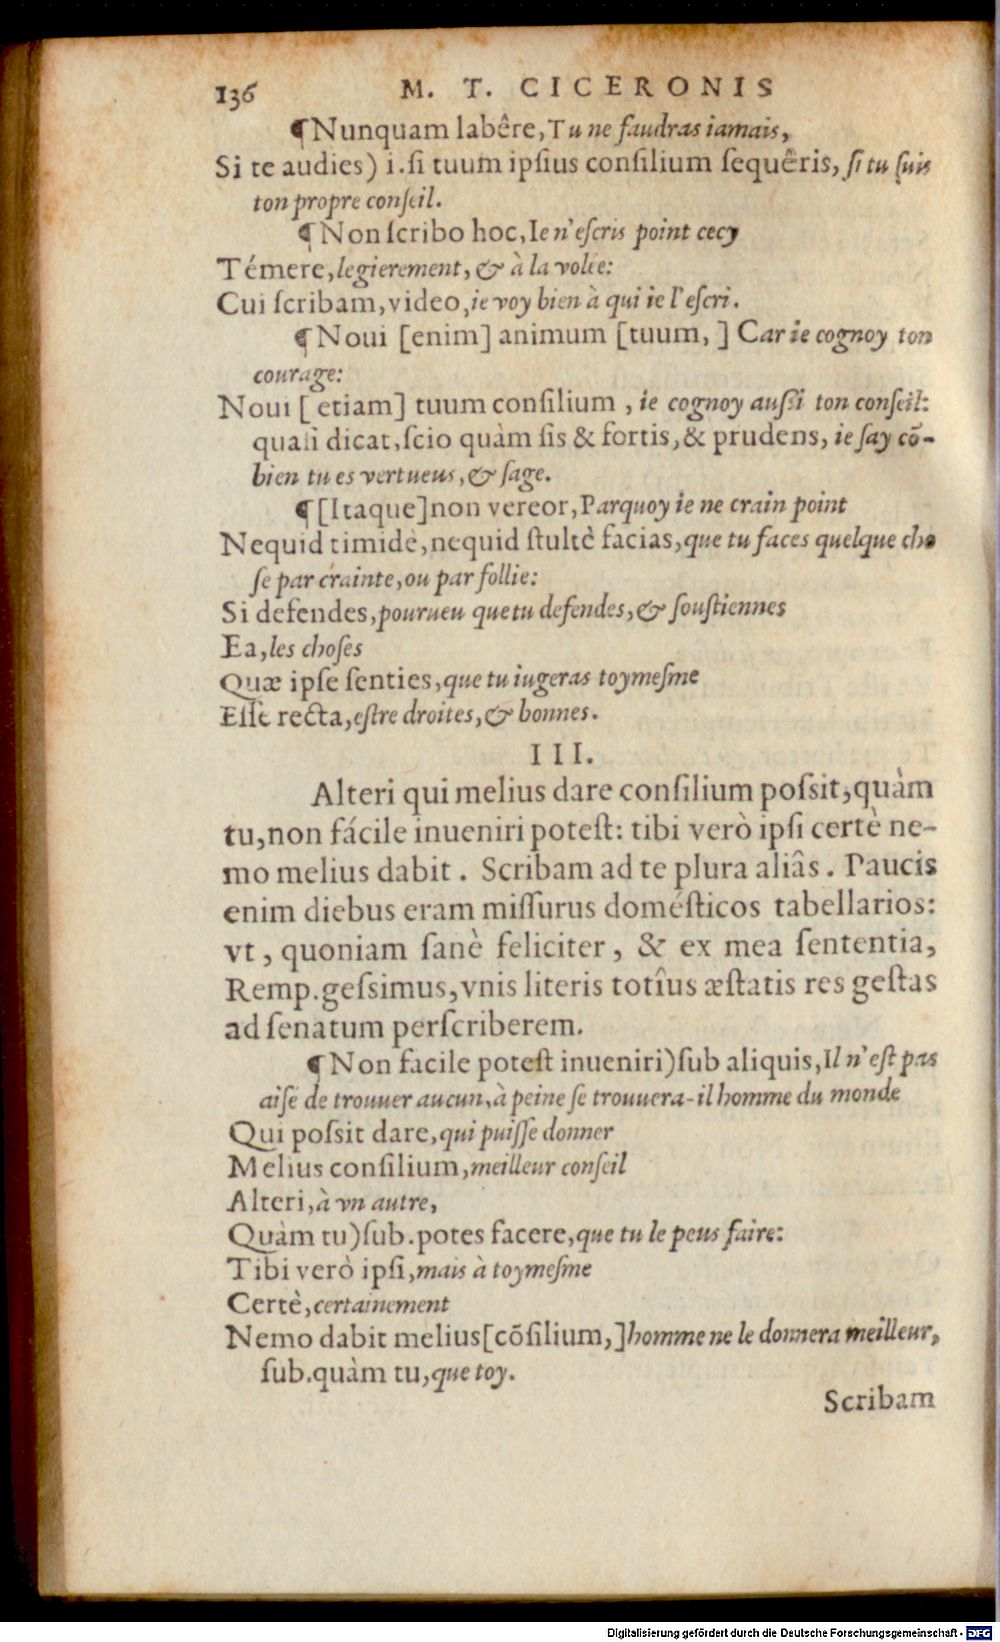 136 M. T. CICERONIS
¶Nunquam labêre, Tu ne faudras iamais,
Si te audies) i. ſi tuum ipſius conſilium ſequêris, ſi tu ſuis
ton propre conſeil.
¶Non ſcribo hoc, Ie n'eſcris point cecy
Témere, legierement, & à la volée:
Cui ſcribam, video, ie voy bien à qui ie l'eſcri.
¶Noui [enim] animum [tuum, ] Car ie cognoy ton
courage:
Noui [ etiam] tuum conſilium , ie cognoy auſſi ton conſeil:
quaſi dicat, ſcio quàm ſis & fortis, & prudens, ie ſay cō-
bien tu es vertueus, & ſage.
¶[Itaque]non vereor, Parquoy ie ne crain point
Nequid timidè, nequid ſtultè facias, que tu faces quelque cho
ſe par crainte, ou par follie:
Si defendes, pourueu que tu defendes, & ſouſtiennes
Ea, les choſes
Quæ ipſe ſenties, que tu iugeras toymeſme
Eſſe recta, eſtre droites, & bonnes.
III.
Alteri qui melius dare conſilium poſsit, quàm
tu, non fácile inueniri poteſt: tibi verò ipſi certè ne-
mo melius dabit . Scribam ad te plura aliâs . Paucis
enim diebus eram miſſurus doméſticos tabellarios:
vt , quoniam ſanè feliciter , & ex mea ſententia,
Remp. geſsimus, vnis literis totîus æſtatis res geſtas
ad ſenatum perſcriberem.
¶Non facile poteſt inueniri) ſub aliquis, Il n'eſt pas
aiſé de trouuer aucun, à peine ſe trouuera-il homme du monde
Qui poſsit dare, qui puiſſe donner
Melius conſilium, meilleur conſeil
Alteri, à vn autre,
Quàm tu) ſub. potes facere, que tu le peus faire:
Tibi verò ipſi, mais à toymeſme
Certè, certainement
Nemo dabit melius [cōſilium, ] homme ne le donnera meilleur,
ſub. quàm tu, que toy.
Scribam
Digitalisierung gefördert durch die Deutsche Forschungsgemeinschaft - DFG